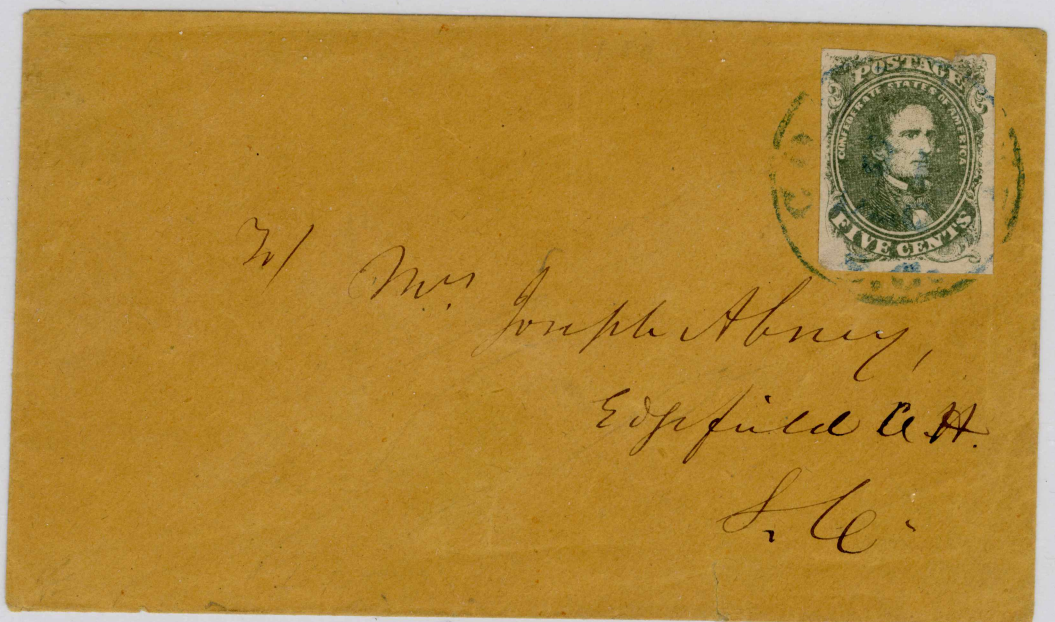 POSTAGE
CONFEDERATE STATES OF AMERICA
FIVE CENTS
To/ Mrs. Joseph Abney,
Edgefield C.H.
S. C.